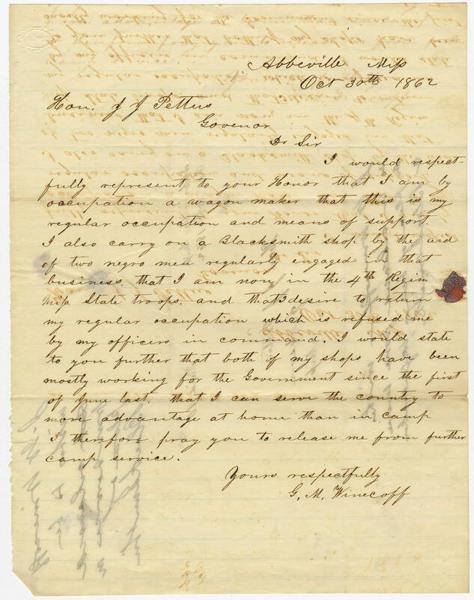 Abbeville Mip
Oct 30th 1862
Hon. J J Pettus
Govenor
Dr Sir
I would respect
fully represent to your Honor that I am by
occupation a wagon maker that this is my
regular occupation and means of support
I also carry on a Blacksmith shop by the aid
of two negro men regularly engaged in that
business, that I am now in the 4th Regim
Mip State troops, and that I desire to return
my regular occupation which is refused me
by my officers in command. I would state
to you further that both of my shops have been
mostly working for the Government since the first
of June last, that I can serve the country to
more advantage at home than in camp
I therefore pray you to release me from further
camp service.
Yours respectfully
G. M. Winecoff